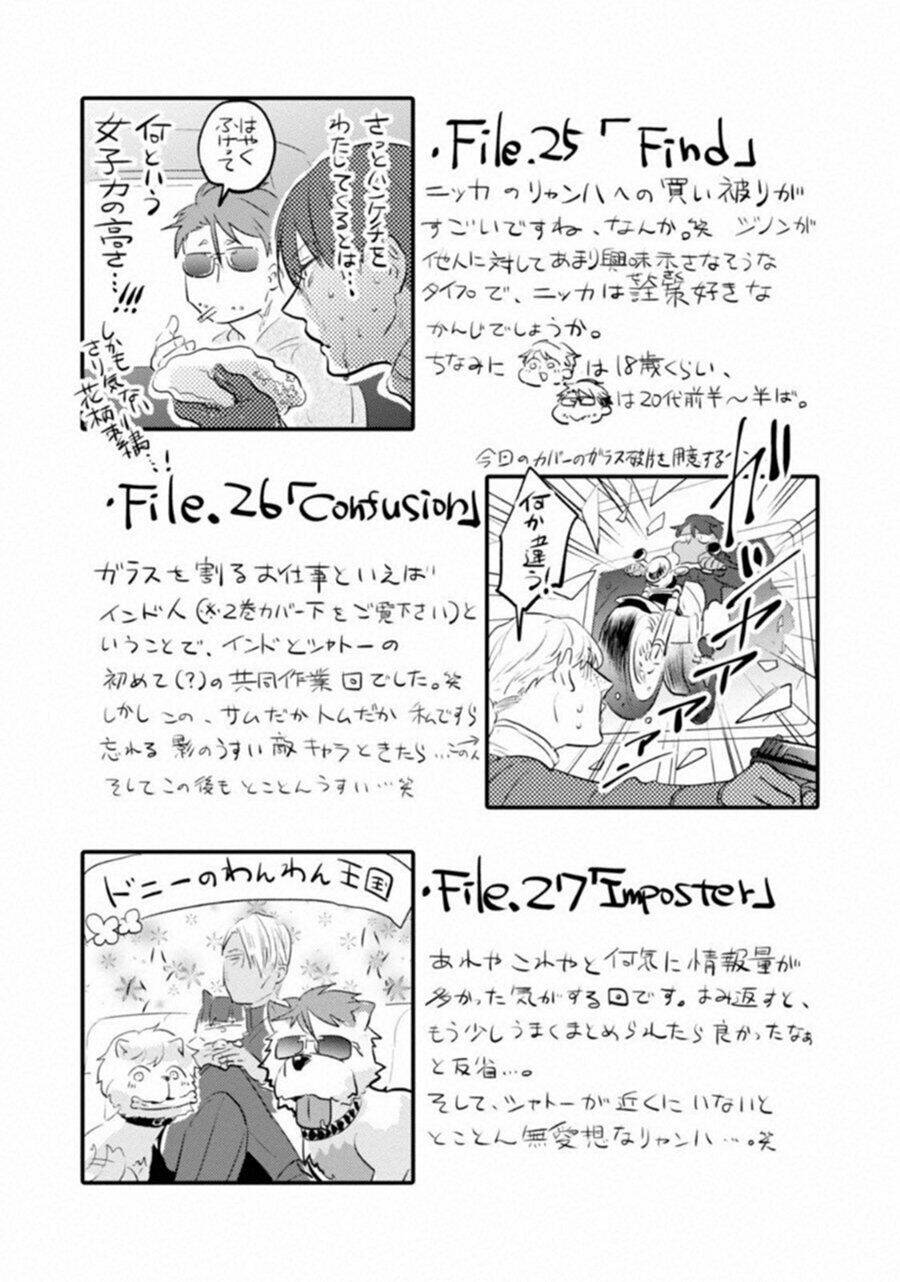 ・File.25「Find」
ニッカのリャンハへの買い被りが
すごいですね、なんか。笑 ジノンが
他人に対してあまり興味示さなそうな
タイプで、ニッカは詮索好きな
かんじでしょうか。
ちなみに は18歳くらい、
は20代前半〜半ば。
さっとハンケチを
わたしてくるとは…
はやく
ふけって
何という
女子力の高さ…!!!
しかも気ない
さり花柄刺繍…!!
・File.26「Confusion」
ガラスを割るお仕事といえば
インド人(※2巻カバー下をご覧下さい)と
いうことで、インドとシャトーの
初めて(?)の共同作業回でした。笑
しかしこの、サムだかトムだか私ですら
忘れる影のうすい敵キャラときたら…この人→
そしてこの後もとことんうすい…笑
今日のカバーのガラス破片を用意するイン
何か違う!
ドギャアアアア
・File.27「Imposter」
あれやこれやと何気に情報量が
多かった気がする回です。よみ返すと、
もう少しうまくまとめられたら良かったなぁ
と反省…。
そして、シャトーが近くにいないと
とことん無愛想なリャンハ…。笑
ドニーのわんわん王国